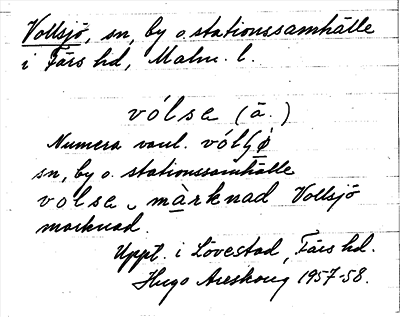 Vollsjö, sn, by o. stationssamhälle
i Färs hd, Malm. l.
vólsa (ä.)
Numera vanl. vólʃø
sn, by o. stationssamhälle
volsa màrknad Vollsjö
marknad.
Uppt. i Lövestad, Färs hd.
Hugo Areskoug 1957-58.